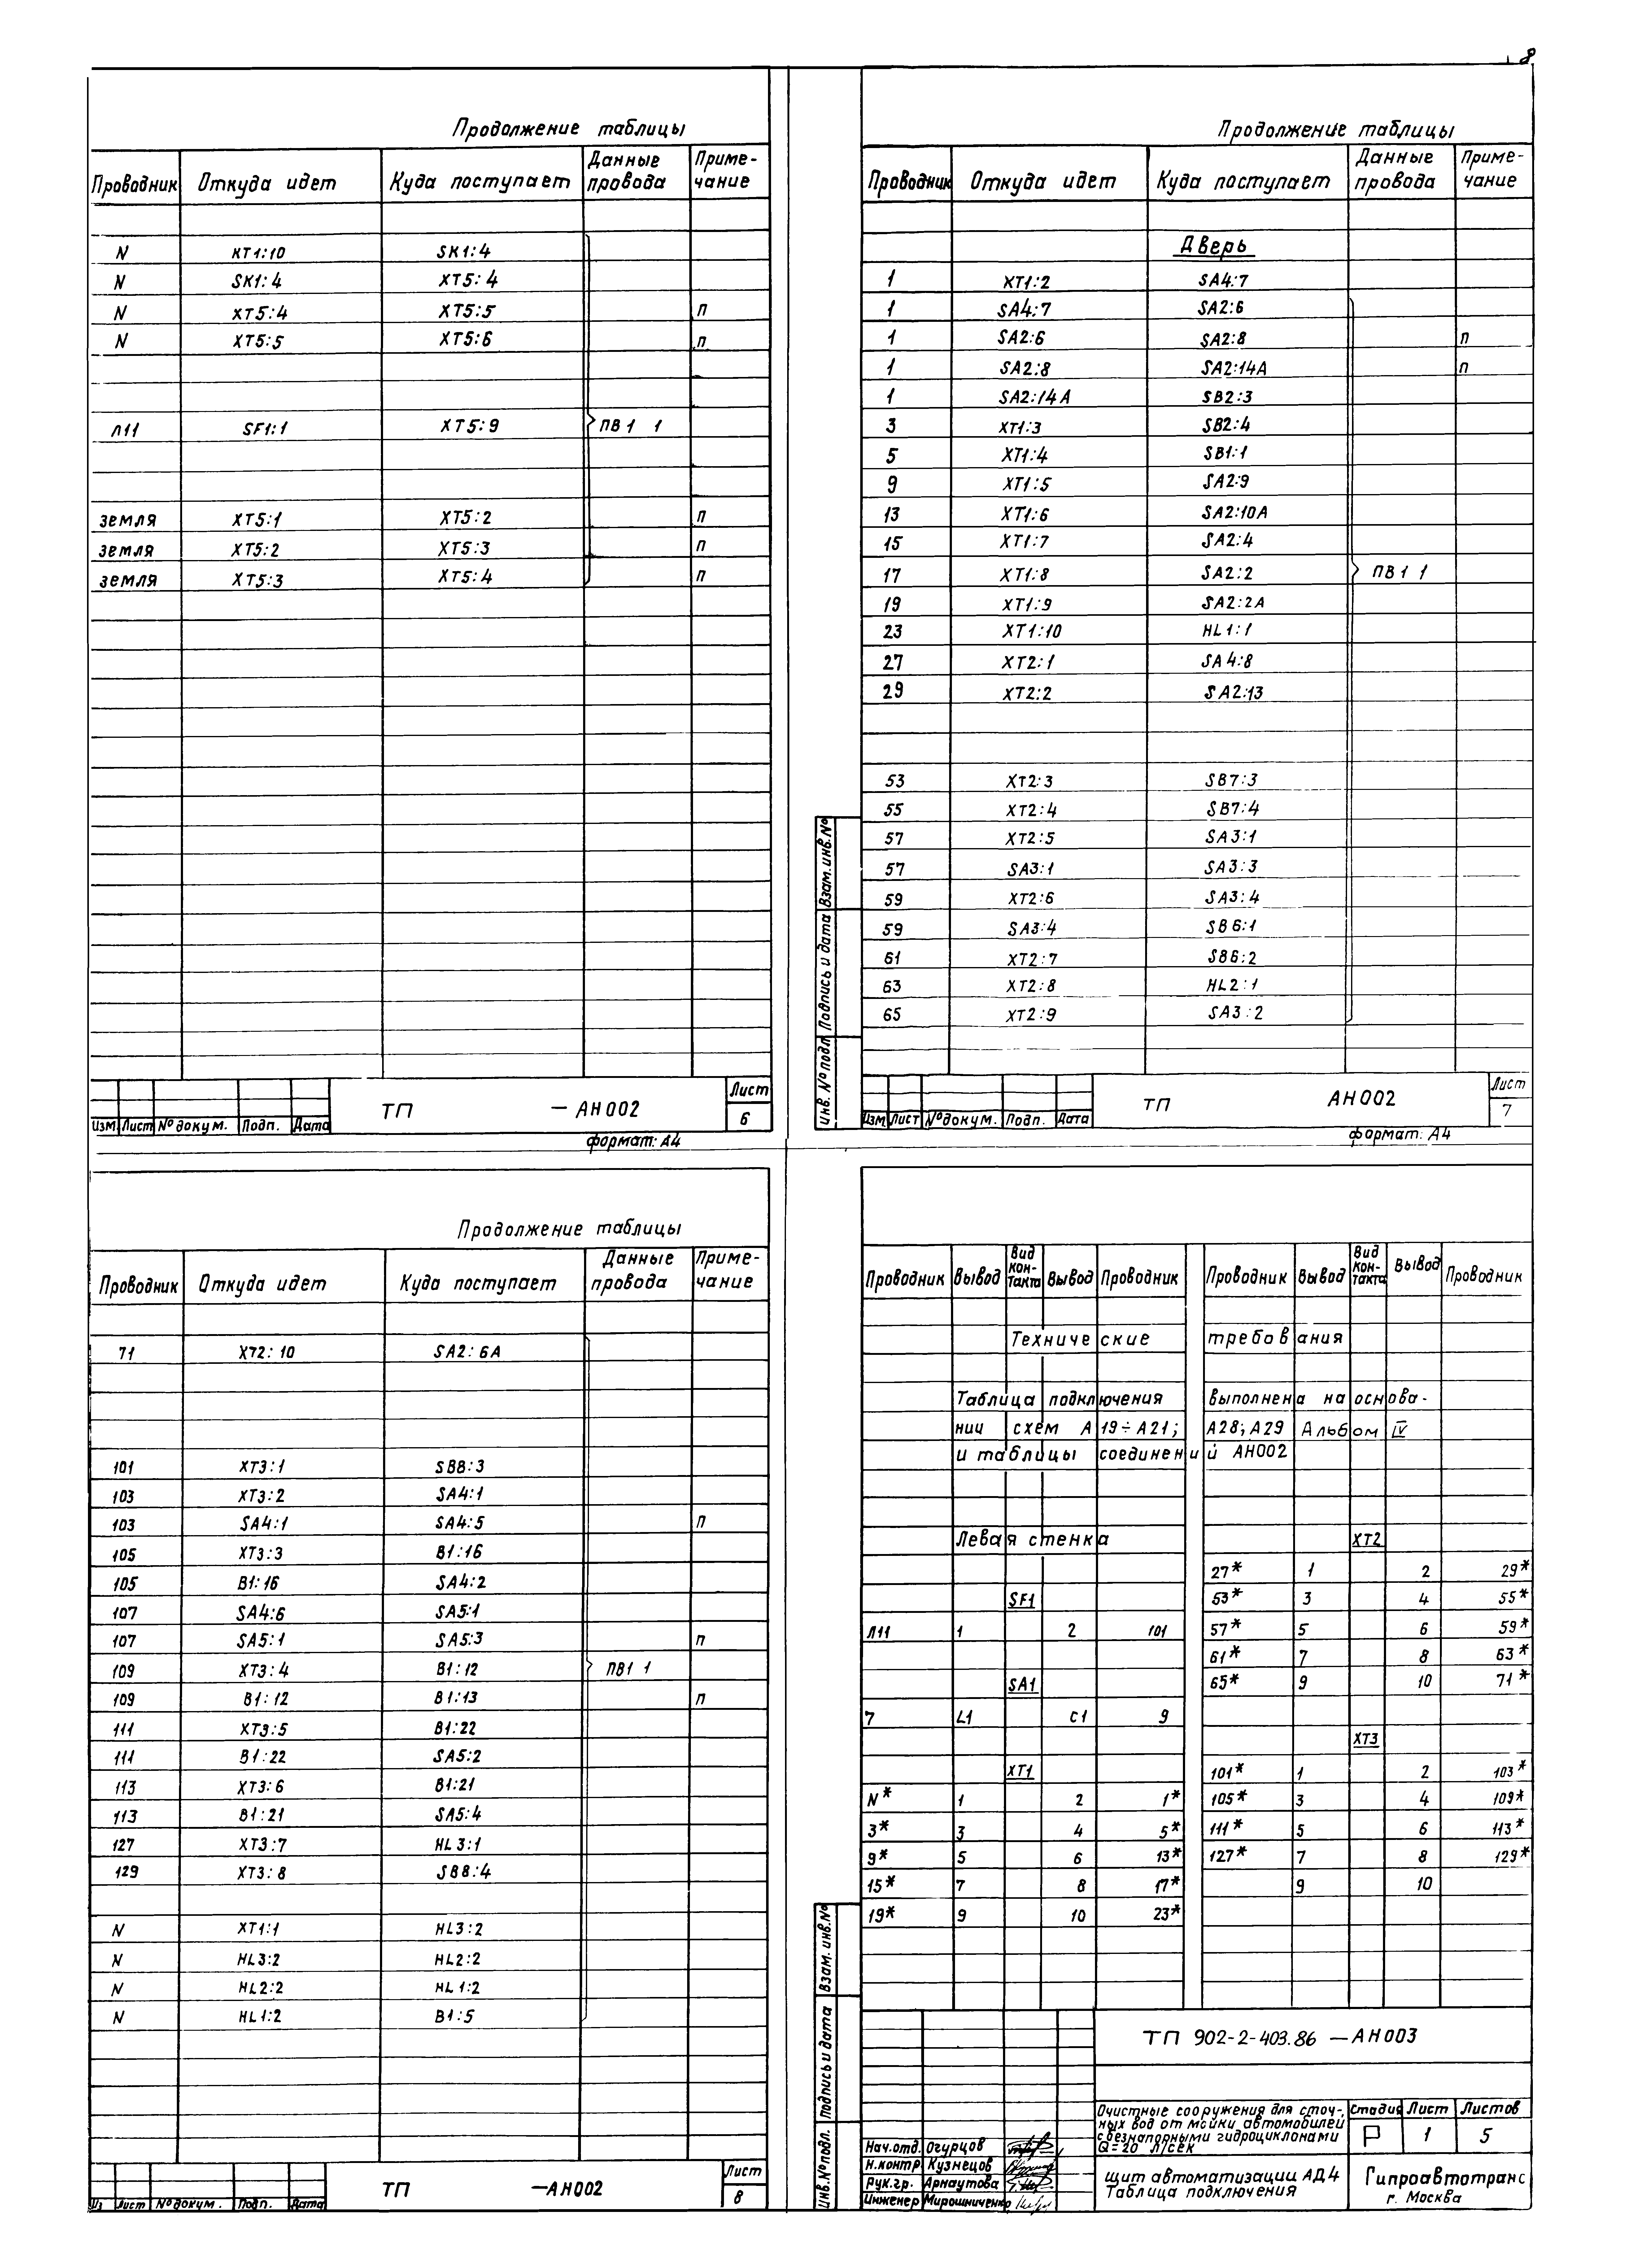 8
Продолжение таблицы
Проводник Откуда идет Куда поступает Данные провода Приме-чание
N КТ1:10 SK1:4
N SK1:4 XT5:4
N XT5:4 XT5:5 п
N XT5:5 XT5:6 п
Л11 SF1:1 XT5:9 ПВ1 1
земля XT5:1 XT5:2 п
земля XT5:2 XT5:3 п
земля XT5:3 XT5:4 п
Изм Лист № докум. Подп. Дата
ТП —АН002
Лист
6
формат: А4
Продолжение таблицы
Проводник Откуда идет Куда поступает Данные провода Приме-чание
Дверь
1 XT1:2 SA4:7
1 SA4:7 SA2:6
1 SA2:6 SA2:8 п
1 SA2:8 SA2:14A п
1 SA2:14A SB2:3
3 XT1:3 SB2:4
5 XT1:4 SB1:1
9 XT1:5 SA2:9
13 XT1:6 SA2:10A
15 XT1:7 SA2:4
17 XT1:8 SA2:2 ПВ1 1
19 XT1:9 SA2:2A
23 XT1:10 HL1:1
27 XT2:1 SA4:8
29 XT2:2 SA2:13
53 XT2:3 SB7:3
55 XT2:4 SB7:4
57 XT2:5 SA3:1
57 SA3:1 SA3:3
59 XT2:6 SA3:4
59 SA3:4 SB6:1
61 XT2:7 SB6:2
63 XT2:8 HL2:1
65 XT2:9 SA3:2
Инв. № подл Подпись и дата Взам. инв. №
Изм Лист № докум. Подп. Дата
ТП АН002
Лист
7
формат: А4
Продолжение таблицы
Проводник Откуда идет Куда поступает Данные провода Приме-чание
71 XT2:10 SA2:6A
101 XT3:1 SB8:3
103 XT3:2 SA4:1
103 SA4:1 SA4:5 п
105 XT3:3 B1:16
105 B1:16 SA4:2
107 SA4:6 SA5:1
107 SA5:1 SA5:3 п
109 XT3:4 B1:12 ПВ1 1
109 B1:12 B1:13 п
111 XT3:5 B1:22
111 B1:22 SA5:2
113 XT3:6 B1:21
113 B1:21 SA5:4
127 XT3:7 HL3:1
129 XT3:8 SB8:4
N XT1:1 HL3:2
N HL3:2 HL2:2
N HL2:2 HL1:2
N HL1:2 B1:5
Из Лист № докум. Подп. Дата
ТП —АН002
Лист
8
Проводник Вывод Вид кон-такта Вывод Проводник Проводник Вывод Вид кон-такта Вывод Проводник
Технические требования
Таблица подключения выполнена на основа-
нии схем А19÷А21; А28; А29 Альбом IV
и таблицы соединений АН002
Левая стенка XT2
27* 1 2 29*
SF1 53* 3 4 55*
Л11 1 2 101 57* 5 6 59*
61* 7 8 63*
SA1 65* 9 10 71*
7 L1 C1 9
XT3
XT1 101* 1 2 103*
N* 1 2 1* 105* 3 4 109*
3* 3 4 5* 111* 5 6 113*
9* 5 6 13* 127* 7 8 129*
15* 7 8 17* 9 10
19* 9 10 23*
Инв. № подл. Подпись и дата Взам. инв. №
ТП 902-2-403.86 —АН003
Очистные сооружения для сточ-
ных вод от мойки автомобилей
с безнапорными гидроциклонами
Q=20 л/сек
Стадия Лист Листов
Р 1 5
Нач.отд. Огурцов
Н.контр Кузнецов
Рук.гр. Арнаутова
Инженер Мирошниченко
щит автоматизации АД4
Таблица подключения
Гипроавтотранс
г. Москва